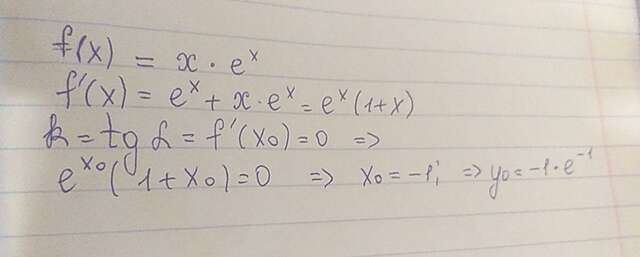 f(x) = x · eˣ
f'(x) = eˣ + x · eˣ = eˣ (1+x)
k = tg α = f'(x₀) = 0 =>
eˣ⁰ (1 + x₀) = 0 => x₀ = -1; => y₀ = -1 · e⁻¹